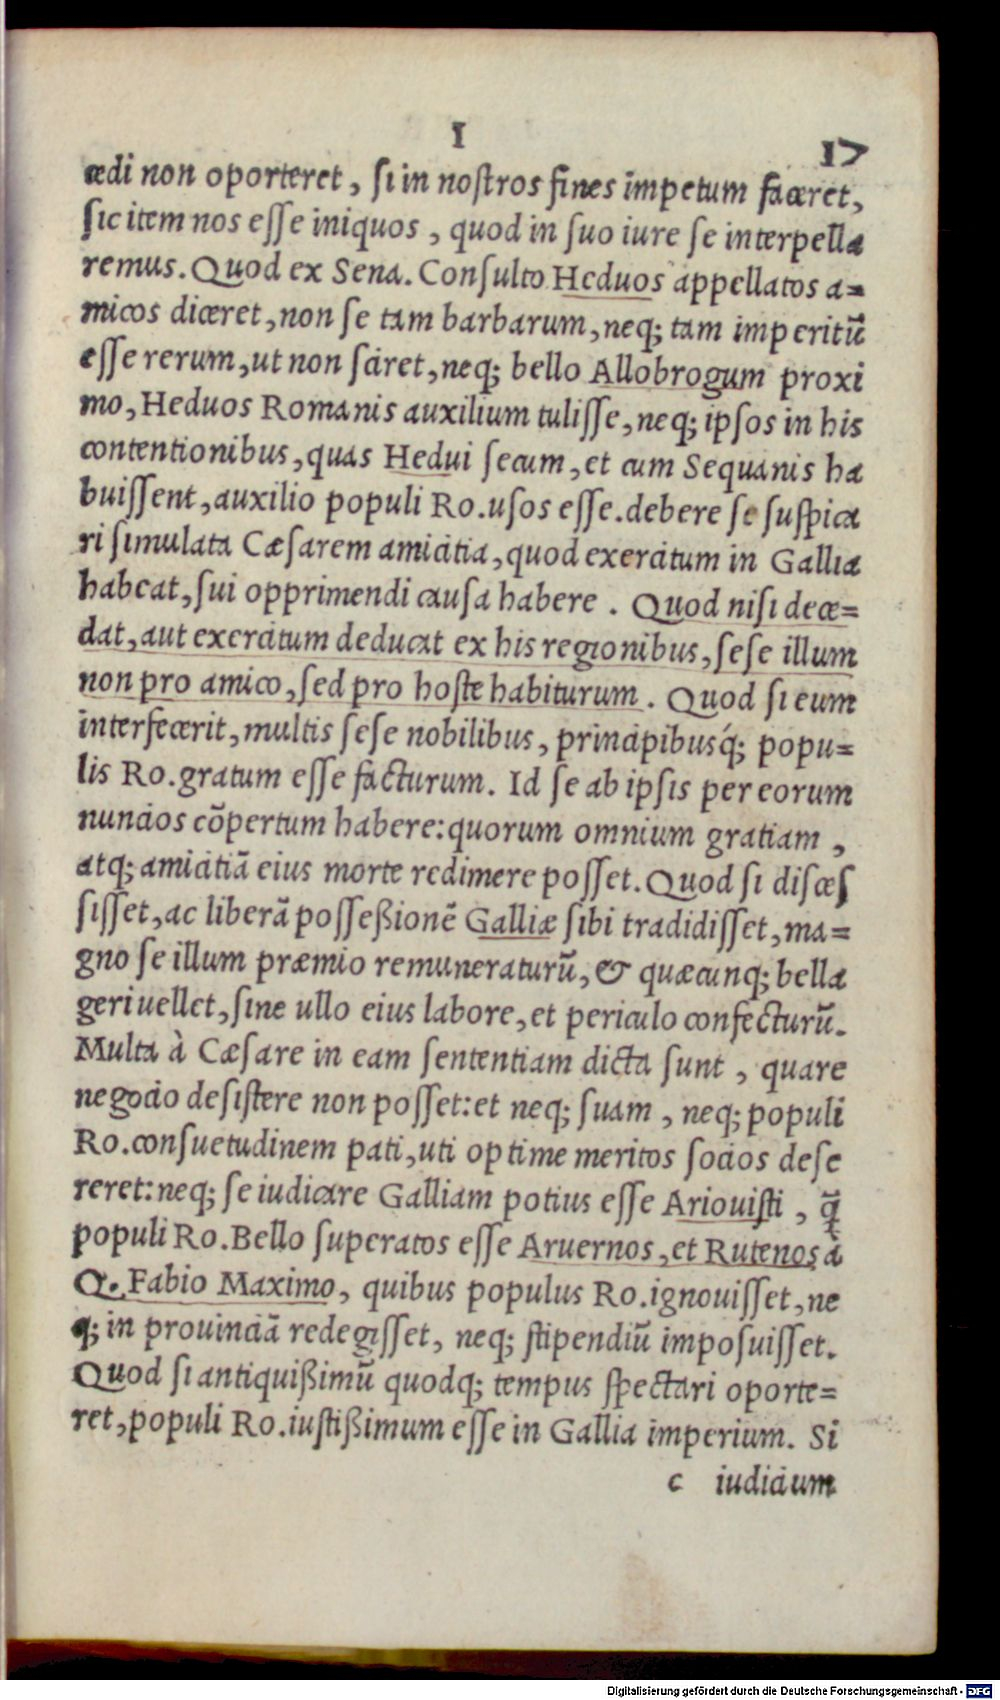 I
17
cedi non oporteret, si in nostros fines impetum faceret,
sic item nos esse iniquos, quod in suo iure se interpella
remus. Quod ex Sena. Consulto Heduos appellatos a=
micos diceret, non se tam barbarum, neq; tam imperitũ
esse rerum, ut non sciret, neq; bello Allobrogum proxi
mo, Heduos Romanis auxilium tulisse, neq; ipsos in his
contentionibus, quas Hedui secum, et cum Sequanis ha
buissent, auxilio populi Ro. usos esse. debere se suspica
ri simulata Cæsarem amicitia, quod exercitum in Gallia
habeat, sui opprimendi causa habere. Quod nisi dece=
dat, aut exercitum deducat ex his regionibus, sese illum
non pro amico, sed pro hoste habiturum. Quod si eum
interfecerit, multis sese nobilibus, principibusq́; popu=
lis Ro. gratum esse facturum. Id se ab ipsis per eorum
nuncios cõpertum habere: quorum omnium gratiam,
atq; amicitiã eius morte redimere posset. Quod si disces
sisset, ac liberã possessionẽ Galliæ sibi tradidisset, ma=
gno se illum præmio remuneraturũ, & quæcunq; bella
geri uellet, sine ullo eius labore, et periculo confecturũ.
Multa à Cæsare in eam sententiam dicta sunt, quare
negocio desistere non posset: et neq; suam, neq; populi
Ro. consuetudinem pati, uti optime meritos socios dese
reret: neq; se iudicare Galliam potius esse Ariouisti, q̃
populi Ro. Bello superatos esse Aruernos, et Rutenos à
Q. Fabio Maximo, quibus populus Ro. ignouisset, ne
q; in prouinciã redegisset, neq; stipendiũ imposuisset.
Quod si antiquissimũ quodq; tempus spectari oporte=
ret, populi Ro. iustissimum esse in Gallia imperium. Si
c iudicium
Digitalisierung gefördert durch die Deutsche Forschungsgemeinschaft - DFG